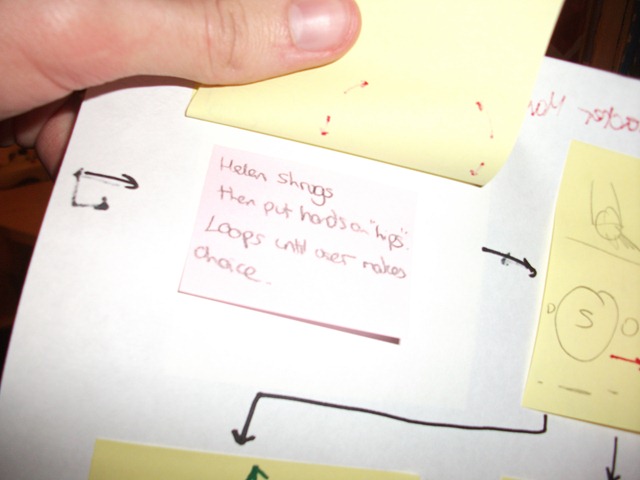 Helen shrugs
then put hands on "hips".
Loops until user makes
choice..
S